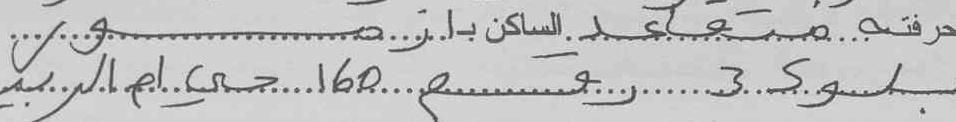 حرفته متقاعد الساكن بازمور
بلوك 3 رقم 160 حي ام الربيع